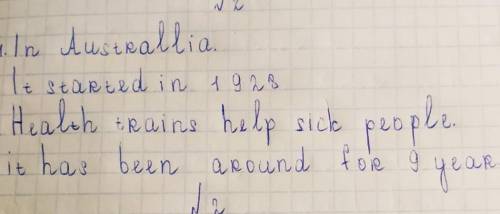 √2
1. In Australlia.
It started in 1928
Health trains help sick people.
it has been around for 9 year
√2